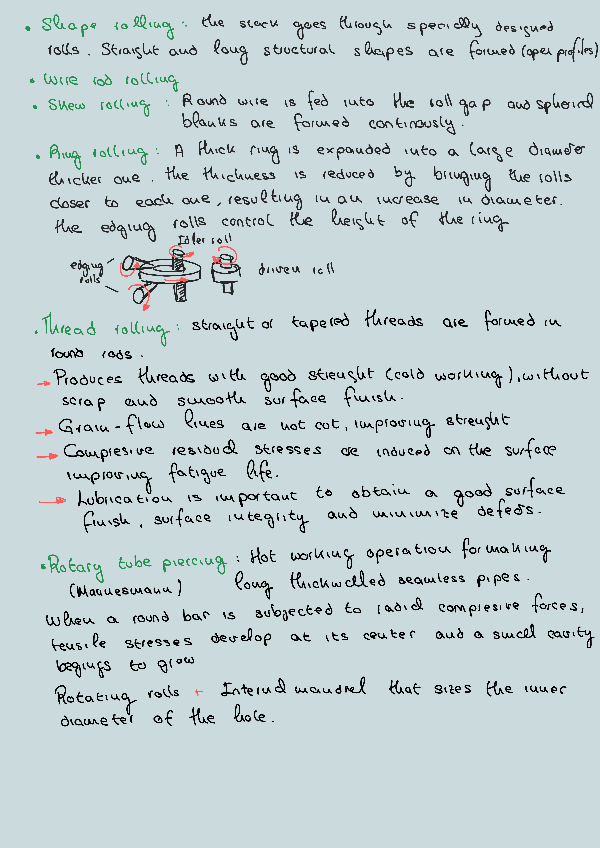 • Shape rolling : the stock goes through specially designed
rolls. Straight and long structural shapes are formed (open profiles)
• Wire rod rolling
• Skew rolling : Round wire is fed into the roll gap and spherical
blanks are formed continously.
• Ring rolling : A thick ring is expanded into a large diameter
thicker one. the thickness is reduced by bringing the rolls
closer to each one, resulting in an increase in diameter.
the edging rolls control the height of the ring
Idler roll
edging
rolls
driven roll
• Thread rolling : straight or tapered threads are formed in
round rods.
→ Produces threads with good strenght (cold working), without
scrap and smooth surface finish.
→ Grain-flow lines are not cut, improving strenght
→ Compresive residual stresses are induced on the surface
improving fatigue life.
→ Lubrication is important to obtain a good surface
finish, surface integrity and minimize defects.
• Rotary tube piercing : Hot working operation for making
(Mannesmann) long thickwalled seamless pipes.
When a round bar is subjected to radial compresive forces,
tensile stresses develop at its center and a small cavity
begings to grow
Rotating rolls + Internal mandrel that sizes the inner
diameter of the hole.